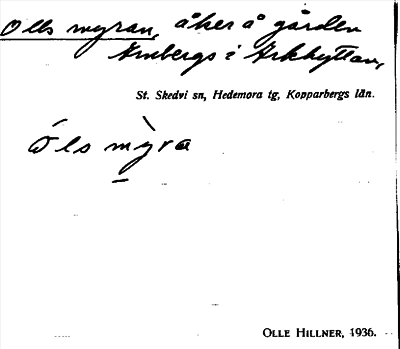 Olls myran, åker å gården
Arnbergs i Arkhyttan,
St. Skedvi sn, Hedemora tg, Kopparbergs län.
óls mỳ̱ra
OLLE HILLNER, 1936.